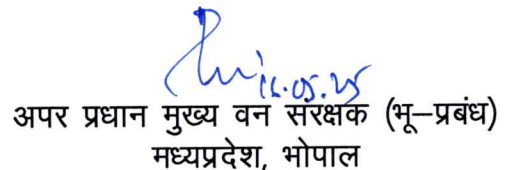 16.05.25
अपर प्रधान मुख्य वन संरक्षक (भू–प्रबंध)
मध्यप्रदेश, भोपाल